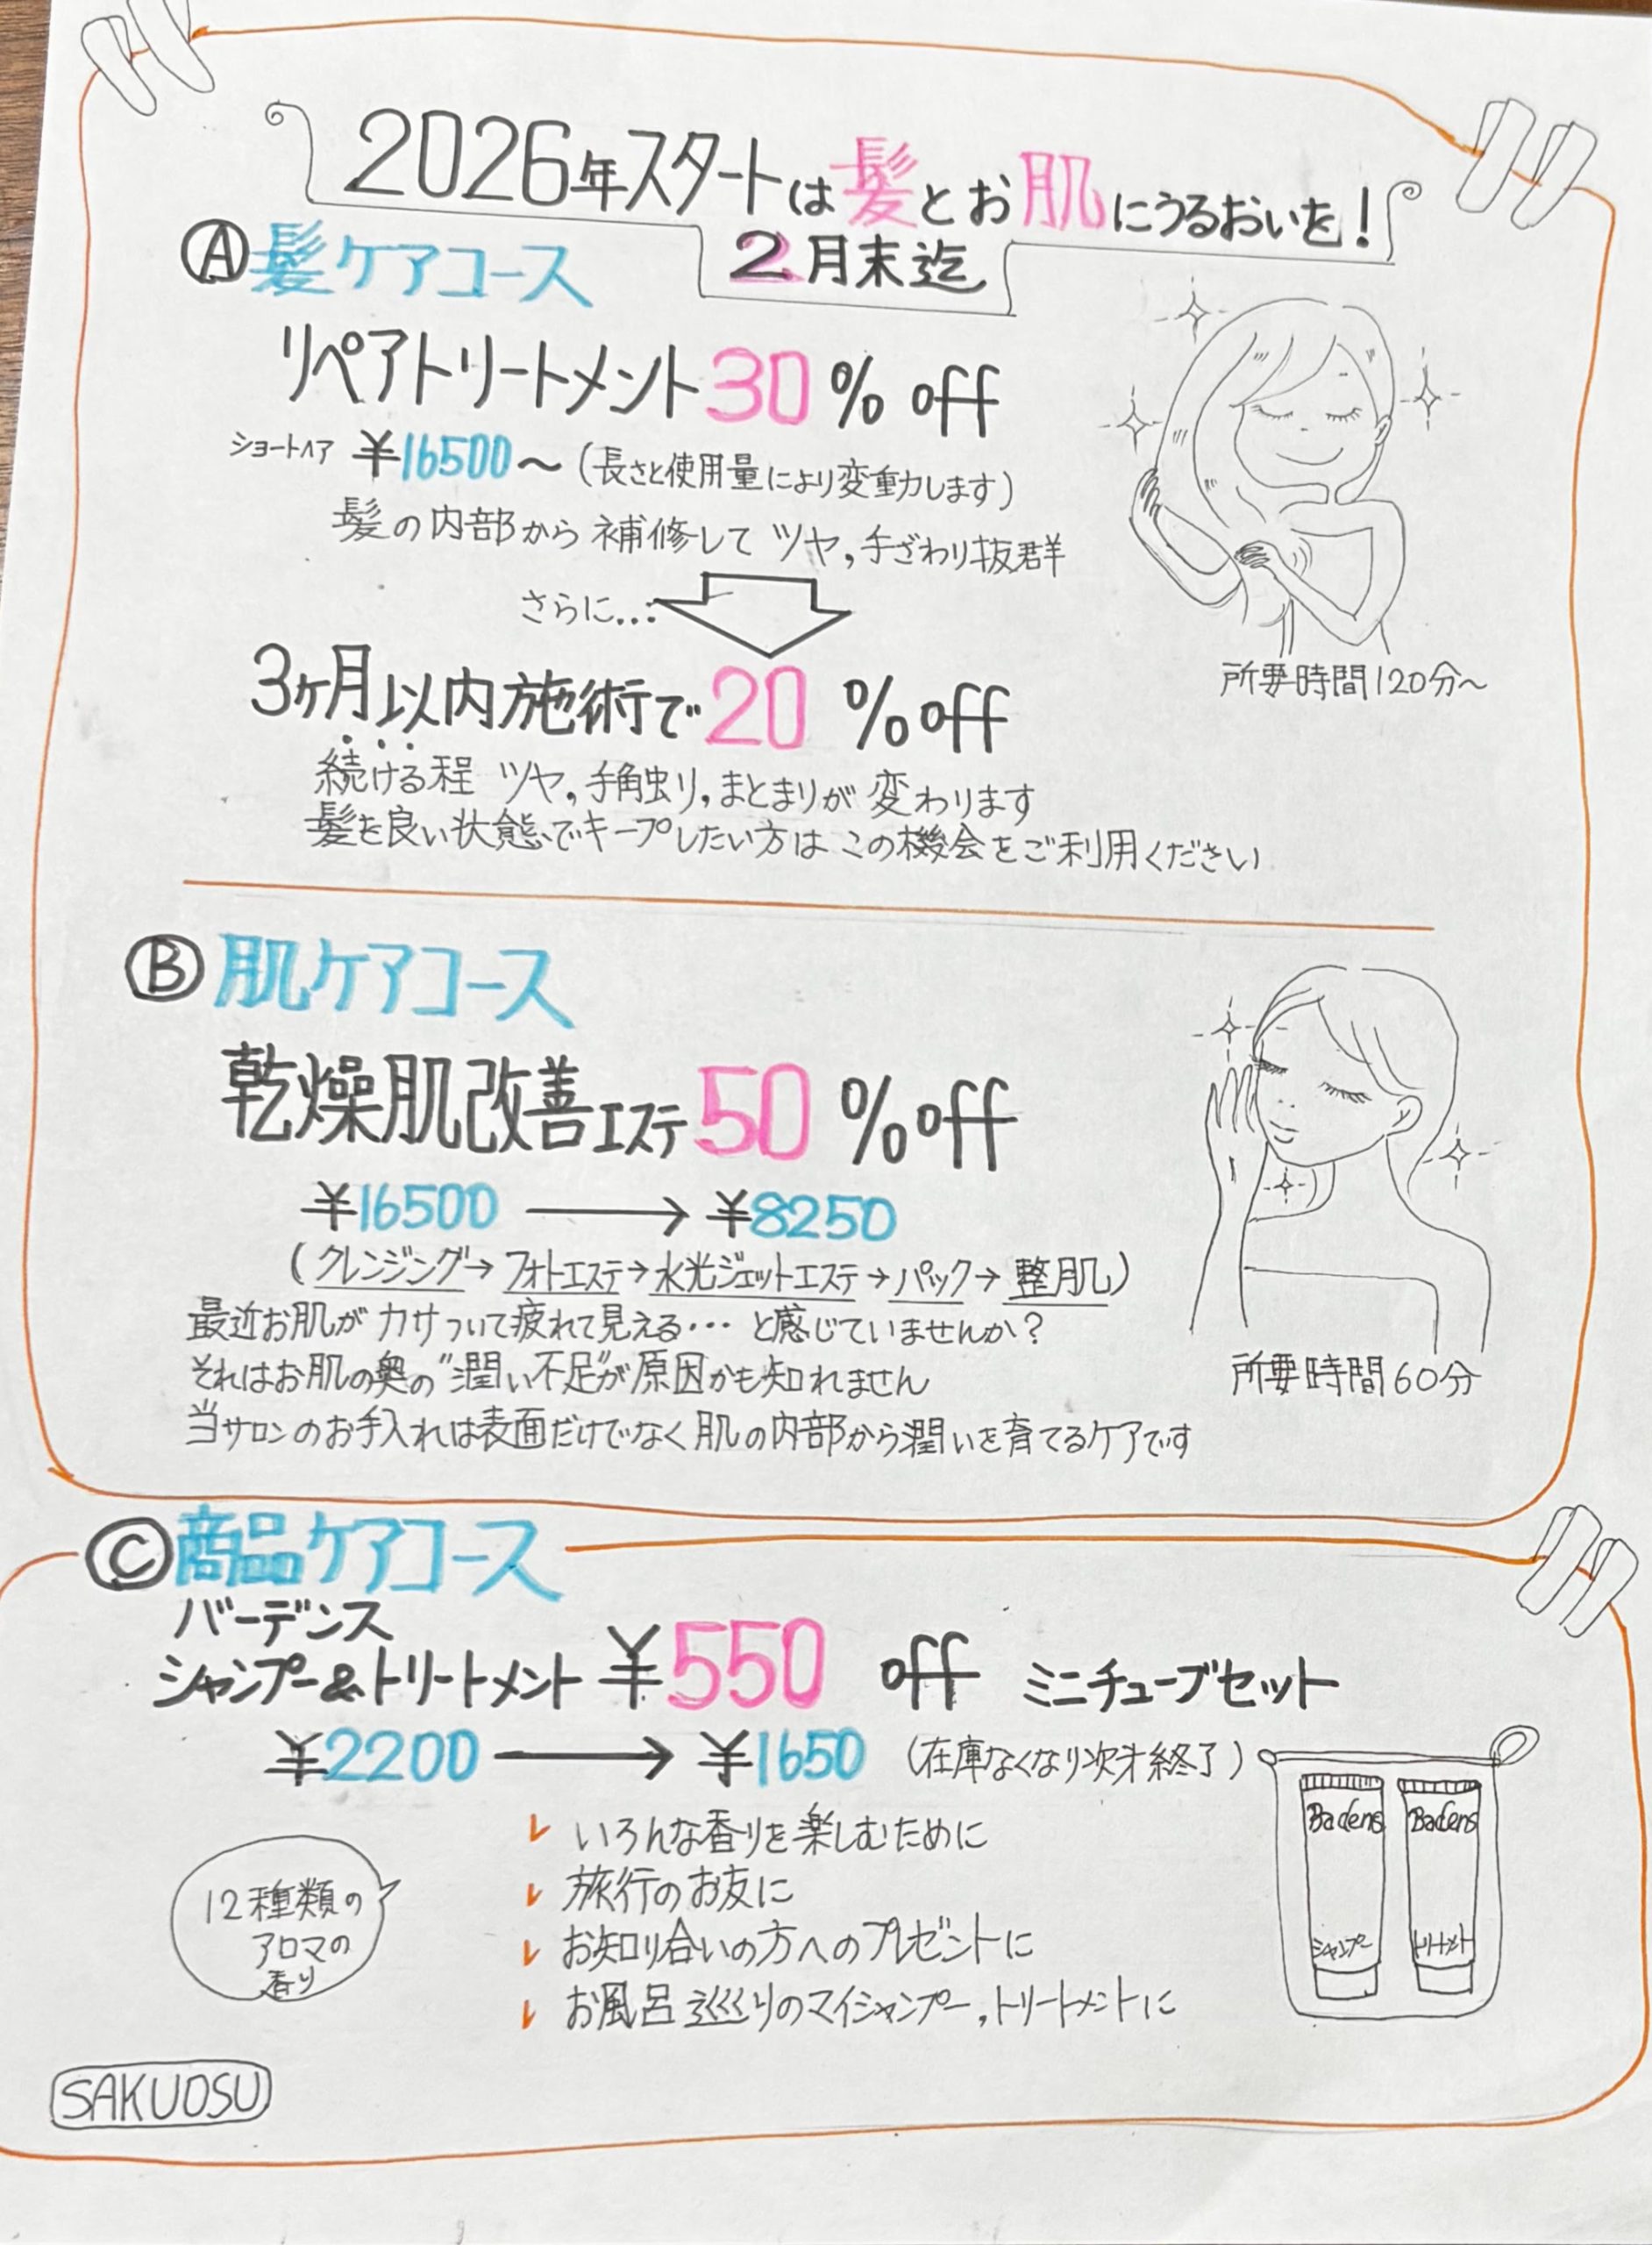 2026年スタートは髪とお肌にうるおいを!
2月末迄
Ⓐ髪ケアコース
リペアトリートメント30%off
ショートヘア ¥16500〜(長さと使用量により変動します)
髪の内部から補修してツヤ,手ざわり抜群
さらに...
3ヶ月以内施術で20%off
続ける程 ツヤ,手触り,まとまりが変わります
髪を良い状態でキープしたい方はこの機会をご利用ください
所要時間120分〜
Ⓑ肌ケアコース
乾燥肌改善エステ50%off
¥16500→¥8250
(クレンジング→フォトエステ→水光ジェットエステ→パック→整肌)
最近お肌がカサついて疲れて見える…と感じていませんか?
それはお肌の奥の"潤い不足"が原因かも知れません
当サロンのお手入れは表面だけでなく肌の内部から潤いを育てるケアです
所要時間60分
Ⓒ商品ケアコース
バーデンス
シャンプー&トリートメント ¥550 off ミニチューブセット
¥2200→¥1650 (在庫なくなり次才終了)
いろんな香りを楽しむために
旅行のお友に
お知り合いの方へのプレゼントに
お風呂巡りのマイシャンプー,トリートメントに
12種類の
アロマの
香り
Badens Badens
シャンプー トリートメント
SAKUOSU